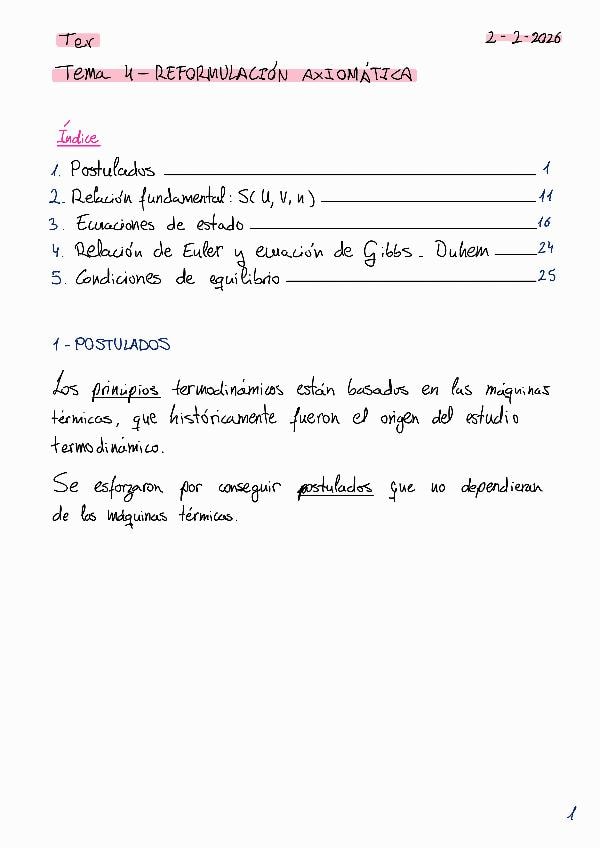 Ter 2-2-2026
Tema 4 - REFORMULACIÓN AXIOMÁTICA
Índice
1. Postulados 1
2. Relación fundamental: S(U, V, n) 11
3. Ecuaciones de estado 16
4. Relación de Euler y ecuación de Gibbs - Duhem 24
5. Condiciones de equilibrio 25
1 - POSTULADOS
Los principios termodinámicos están basados en las máquinas
térmicas, que históricamente fueron el origen del estudio
termodinámico.
Se esforzaron por conseguir postulados que no dependieran
de las máquinas térmicas.
1